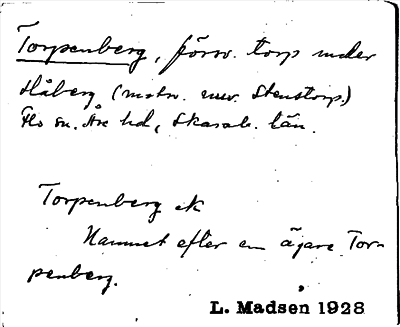 Torpenberg, förv. torp under
Håberg (motsv. nuv. Stenstorp.)
Flo sn. Åse hd, Skarab. län.
Torpenberg ek
Namnet efter en ägare Tor-
penberg.
L. Madsen 1928